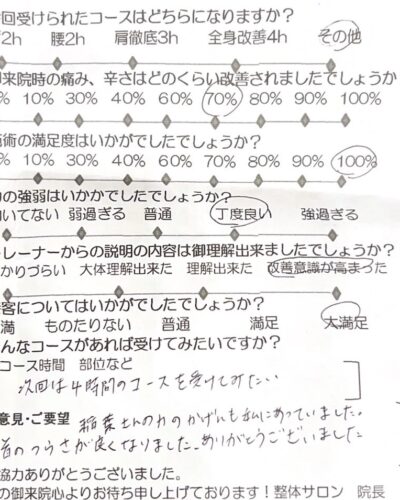 回受けられたコースはどちらになりますか？
2h 腰2h 肩徹底3h 全身改善4h その他
来院時の痛み、辛さはどのくらい改善されましたでしょうか
% 10% 30% 40% 60% 70% 80% 90% 100%
術の満足度はいかがでしたでしょうか？
% 10% 30% 40% 60% 70% 80% 90% 100%
の強弱はいかかでしたでしょうか？
いてない 弱過ぎる 普通 丁度良い 強過ぎる
レーナーからの説明の内容は御理解出来ましたでしょうか？
かりづらい 大体理解出来た 理解出来た 改善意識が高まった
客についてはいかがでしたでしょうか？
満 ものたりない 普通 満足 大満足
んなコースがあれば受けてみたいですか？
コース時間 部位など
次回は4時間のコースを受けてみたい
意見・ご要望 稲葉さんの力のかげんも私にあっていました。
首のつらさが良くなりました。ありがとうございました
協力ありがとうございました。
の御来院心よりお待ち申し上げております！整体サロン 院長